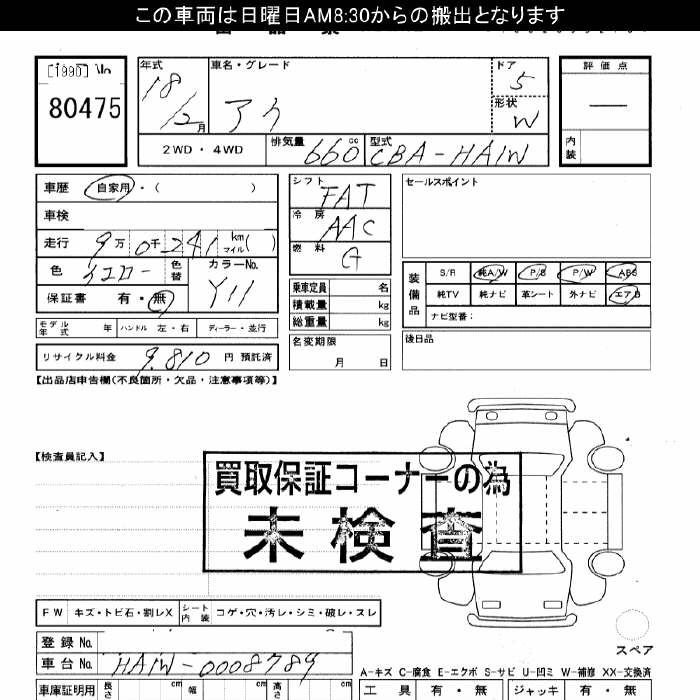 この車両は日曜日AM8:30からの搬出となります
[1990] No
80475
年式 車名・グレード ドア 評価点
18 5
/2月 アイ 形状 W
2WD・4WD 排気量 660cc 型式 CBA-HA1W
内装
車歴 自家用・( )
車検
走行 9万0千241 km マイル( )
色 イエロー 色替 カラーNo. Y11
保証書 有・無
モデル年式 年 ハンドル 左・右 ディーラー・並行
リサイクル料金 9,810 円 預託済
シフト FAT
冷房 AAC
燃料 G
乗車定員 名
積載量 kg
総重量 kg
名変期限
月 日
セールスポイント
装備品 S/R 純A/W P/S P/W ABS
純TV 純ナビ 革シート 外ナビ エアB
ナビ型番:
後日品
【出品店申告欄(不良箇所・欠品・注意事項等)】
【検査員記入】
買取保証コーナーの為
未検査
FW キズ・トビ石・割レX シート内装 コゲ・穴・汚レ・シミ・破レ・スレ
スペア
登録 No.
車台 No. HA1W-0008789
A-キズ C-腐食 E-エクボ S-サビ U-凹ミ W-補修 XX-交換済
車庫証明用 長さ cm 幅 cm 高さ cm 工具 有・無 ジャッキ 有・無